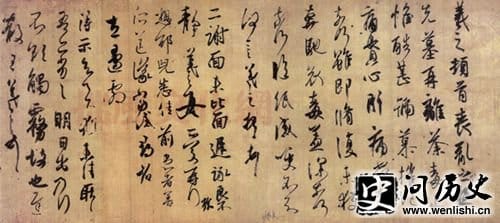 羲之頓首喪亂之極
先墓再離荼毒追
惟酷甚號慕摧
痛貫心肝痛當
奈何雖即脩復未獲
奔馳哀毒益深奈何
奈何臨紙感哽不知
何言羲之頓首
二謝面未比面遲詠良
静羲之女愛再拜
想邵兒悉佳前患者善
所送議當試尋省
左邊劇
得示知足下猶未佳耿
耿吾亦劣劣明日出乃行
不欲觸霧故也遲
散王羲之頓首
问历史
www.wenlishi.cn